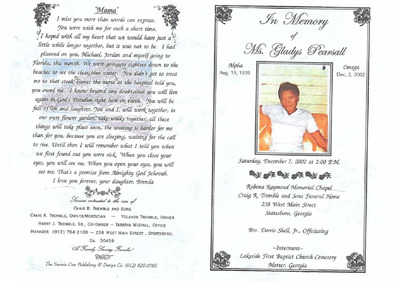 "Mama"
I miss you more than words can express.
You were with me for such a short time,
I hoped with all my heart that we would have just a
little while longer together, but it was not to be. I had
planned on you, Michael, Jordan and myself going to
Florida, this month. We were going to
beaches to see the clear blue water. You didn't get to treat
me to that steak dinner the nurse at the hospital told you,
you owed me. I know beyond any doubt that you will live
again in God's Paradise right here on earth. You will be
full of life and laughter. You and I will work together, in
our own flower garden, take walks together, all these
things will take place soon, the waiting is harder for me
than for you, because you are sleeping, waiting for the call
to rise. Until then I will remember what I told you when
we first found out you were sick, "When you close your
eyes, you will see me. When you open your eyes, you will
see me. That's a promise from Almighty God Jehovah.
I love you forever, your daughter, Brenda
Services entrusted to the care of
CRAIG R. TREMBLE AND SONS
CRAIG R. TREMBLE, OWNER/MORTICIAN YOLANDA TREMBLE, OWNER
HARRY J. TREMBLE, SR., CO-OWNER TABITHA MCPHAIL, OFFICE
MANAGER (912) 764-2100 238 WEST MAIN STREET, STATESBORO,
GA. 30458
"A Family Serving Families"
The Eunice One Printing & Design Co. (912) 820-0783
In Memory
of
Ms. Gladys Pearsall
Alpha
Aug. 19, 1939
Omega
Dec. 2, 2002
Saturday, December 7, 2002 at 2:00 P.M.
Robena Raymond Memorial Chapel
Craig R. Tremble and Sons Funeral Home
238 West Main Street
Statesboro, Georgia
Bro. Dorris Shell, Jr., Officiating
~Interment~
Lakeside First Baptist Church Cemetery
Metter, Georgia